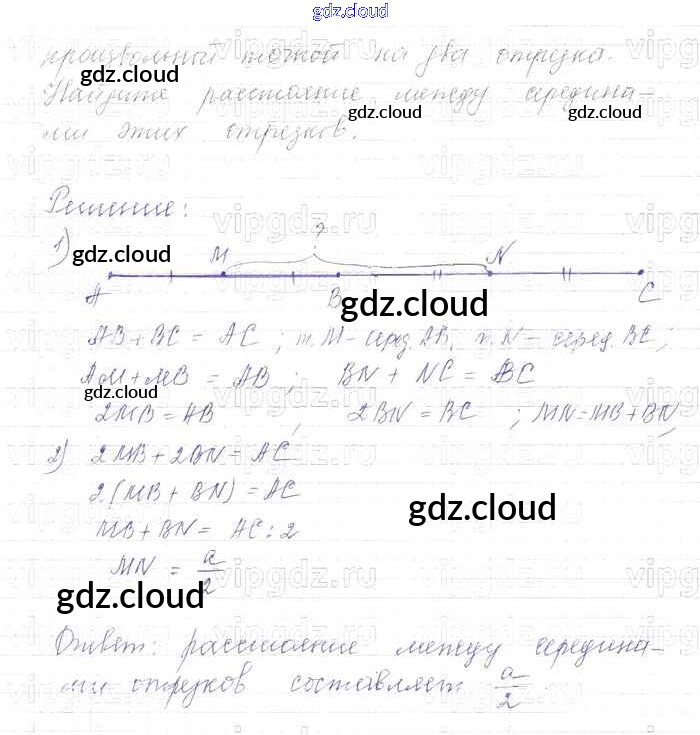 gdz.cloud
произвольный точкой на два отрезка.
gdz.cloud
Найдите расстояние между середина-
gdz.cloud gdz.cloud
ми этих отрезков.
Решение:
vipgdz.ru
1) gdz.cloud M ? N
A B C
gdz.cloud
AB+BC = AC ; т. M - серед. AB, т. N - серед. BC;
AM+MB = AB ; BN + NC = BC
gdz.cloud
2MB = AB , 2BN = BC ; MN=MB+BN,
2) 2MB+2BN= AC
2(MB + BN) = AC
gdz.cloud
MB+BN= AC:2
MN = a/2
gdz.cloud
Ответ: расстояние между середина-
ми отрезков составляет a/2